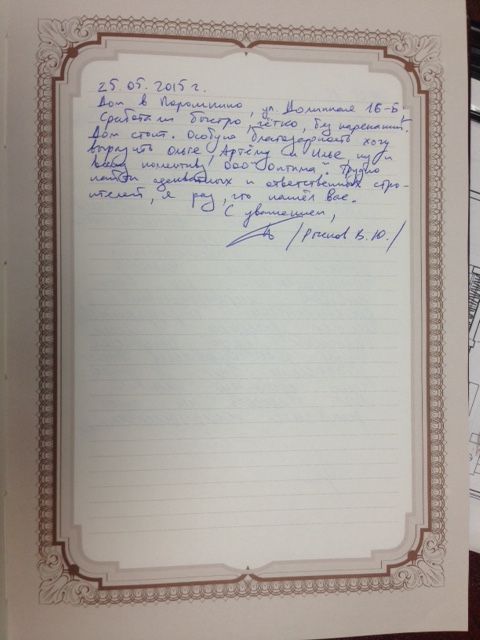 25.05.2015 г.
Дом в Паромкино, ул. Долинная 16-Б
Сработали быстро, чётко, без нареканий.
Дом стоит. Особую благодарность хочу
выразить Ольге, Артёму и Илье, ну и
всему коллективу ООО "Оптима". Трудно
найти адекватных и ответственных стро-
ителей, я рад, что нашёл вас.
С уважением,
/ В. Ю./